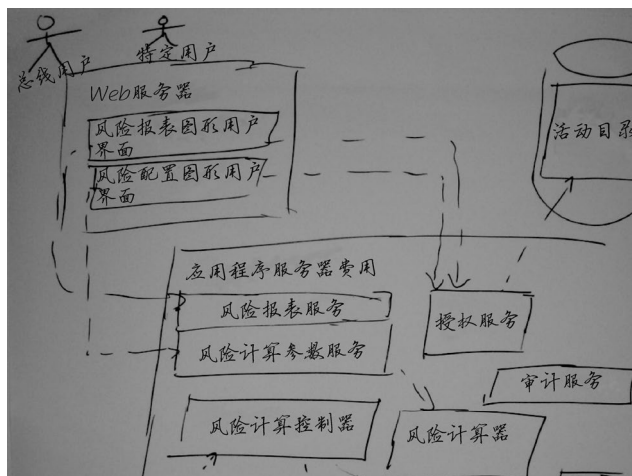 总线用户
特定用户
Web服务器
风险报表图形用户
界面
风险配置图形用户
界面
活动目录
应用程序服务器费用
风险报表服务
风险计算参数服务
授权服务
审计服务
风险计算控制器
风险计算器